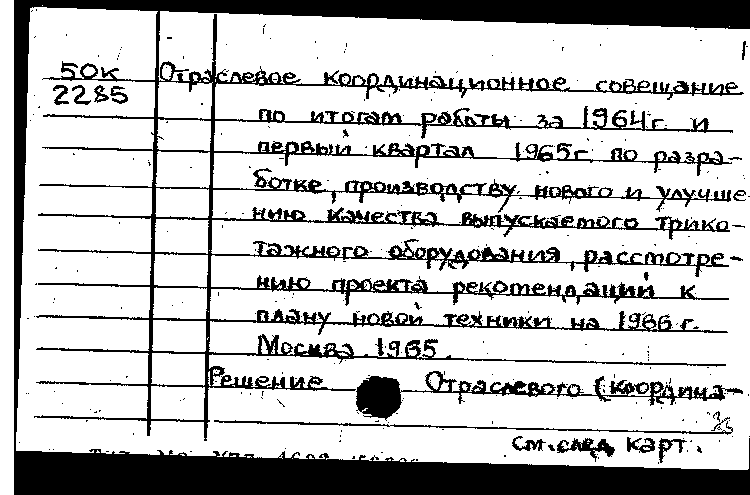 50к Отраслевое координационное совещание
2285 по итогам работы за 1964г. и
первый квартал 1965г. по разра-
ботке, производству нового и улучше
нию качества выпускаемого трико-
тажного оборудования, рассмотре-
нию проекта рекомендаций к
плану новой техники на 1966 г.
Москва. 1965.
Решение Отраслевого (координа-
см. след. карт.